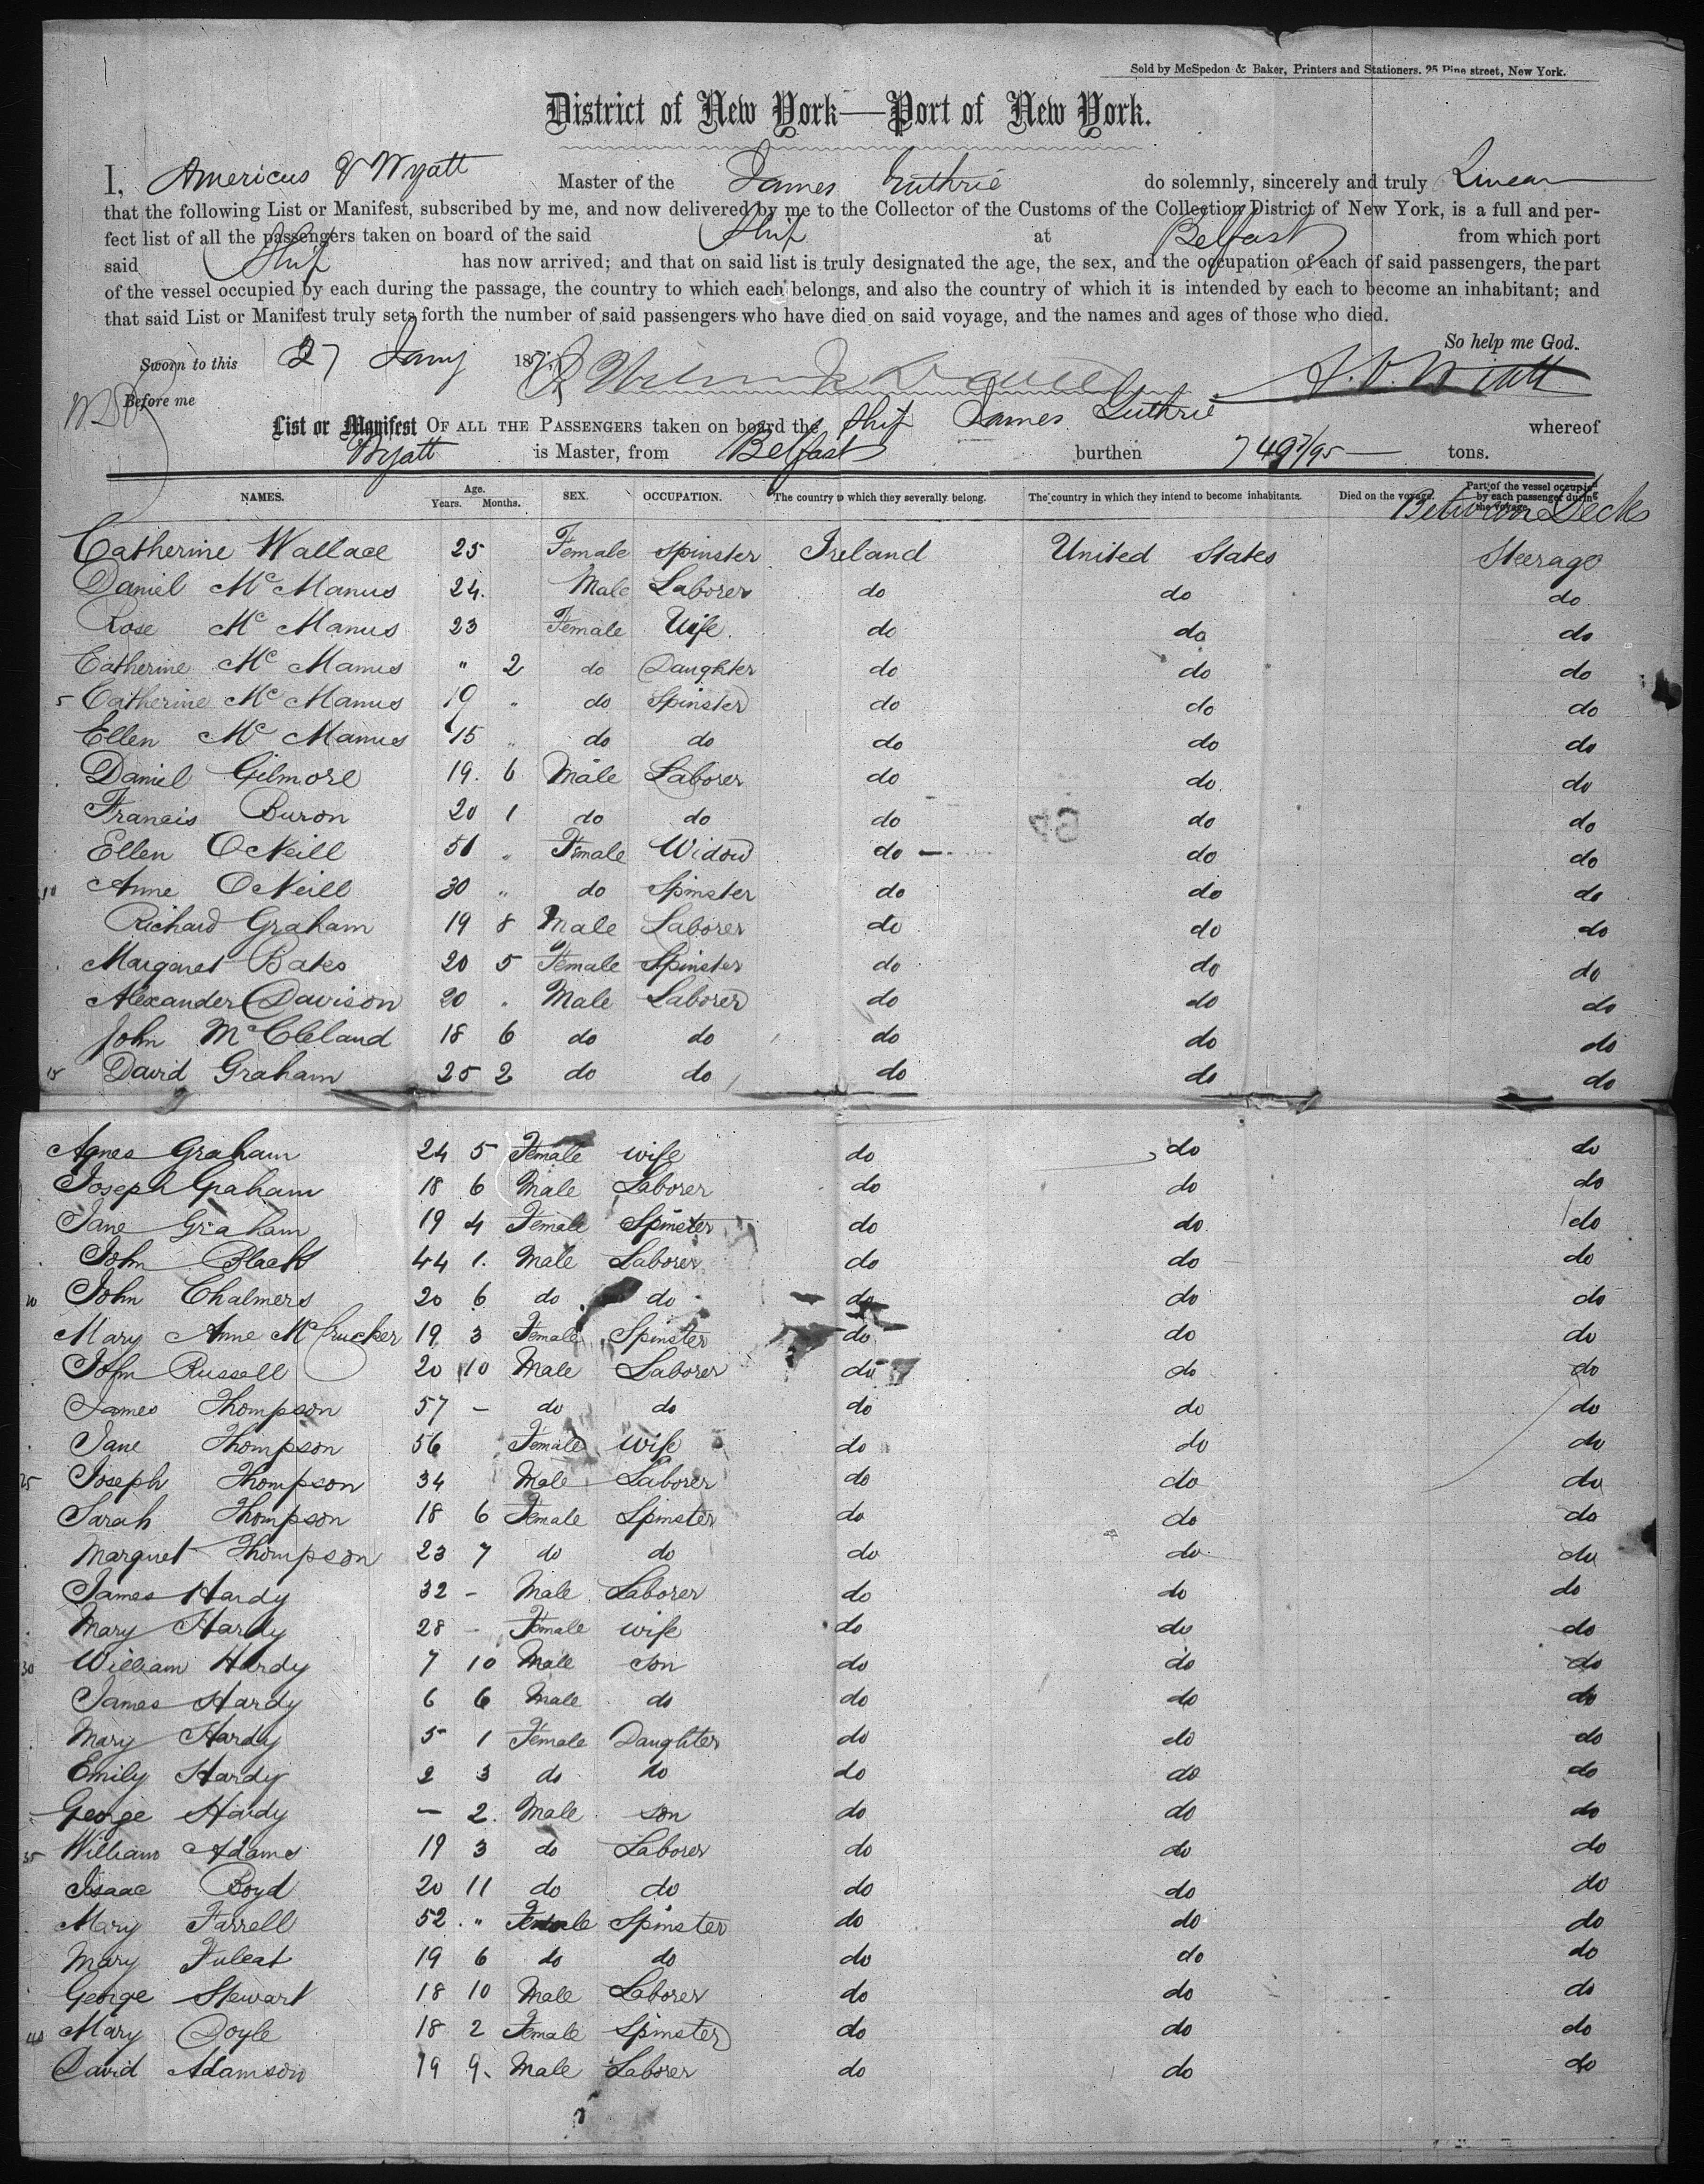 Sold by McSpedon & Baker, Printers and Stationers. 25 Pine street, New York.
District of New York—Port of New York.
I, Americus V Wyatt Master of the James Guthrie do solemnly, sincerely and truly Swear
that the following List or Manifest, subscribed by me, and now delivered by me to the Collector of the Customs of the Collection District of New York, is a full and per-
fect list of all the passengers taken on board of the said Ship at Belfast from which port
said Ship has now arrived; and that on said list is truly designated the age, the sex, and the occupation of each of said passengers, the part
of the vessel occupied by each during the passage, the country to which each belongs, and also the country of which it is intended by each to become an inhabitant; and
that said List or Manifest truly sets forth the number of said passengers who have died on said voyage, and the names and ages of those who died.
So help me God.
Sworn to this 27 Jany 185 A. V. Wyatt
Before me
List or Manifest OF ALL THE PASSENGERS taken on board the Ship James Guthrie whereof
Wyatt is Master, from Belfast burthen 749 7/95 tons.
NAMES. Age. Years. Months. SEX. OCCUPATION. The country to which they severally belong. The country in which they intend to become inhabitants. Died on the voyage. Part of the vessel occupied by each passenger during the voyage.
Between Decks
Catherine Wallace 25 Female Spinster Ireland United States Steerage
Daniel McManus 24. Male Laborer do do do
Rose McManus 23 Female Wife do do do
Catherine McManus " 2 do Daughter do do do
5 Catherine McManus 19 " do Spinster do do do
Ellen McManus 15 " do do do do do
Daniel Gilmore 19. 6 Male Laborer do do. do
Francis Buron 20 1 do do do do do
Ellen ONeill 51 " Female Widow do do do
10 Anne ONeill 30 " do Spinster do do do
Richard Graham 19 8 Male Laborer do do do
Margaret Bates 20 5 Female Spinster do do do
Alexander Davison 20 " Male Laborer do do do
John McCleland 18 6 do do do do do
15 David Graham 25 2 do do do do do
Agnes Graham 24 5 Female wife do do do
Joseph Graham 18 6 Male Laborer do do do
Jane Graham 19 4 Female Spinster do do do
John Black 44 1. Male Laborer do do do
20 John Chalmers 20 6 do do do do do
Mary Anne McCrucker 19 3 Female Spinster do do do
John Russell 20 10 Male Laborer do do do
James Thompson 57 - do do do do do
Jane Thompson 56 Female wife do do do
25 Joseph Thompson 34 Male Laborer do do do
Sarah Thompson 18 6 Female Spinster do do do
Marguet Thompson 23 7 do do do do do
James Hardy 32 - Male Laborer do do do
Mary Hardy 28 - Female wife do do do
30 William Hardy 7 10 Male son do do do
James Hardy 6 6 Male do do do do
Mary Hardy 5 1 Female Daughter do do do
Emily Hardy 2 3 do do do do do
George Hardy - 2. Male son do do do
35 William Adams 19 3 do Laborer do do do
Isaac Boyd 20 11 do do do do do
Mary Farrell 52. " Female Spinster do do do
Mary Fuleat 19 6 do do do do do
George Stewart 18 10 Male Laborer do do do
40 Mary Doyle 18 2 Female Spinster do do do
David Adamson 19 9. Male Laborer do do do